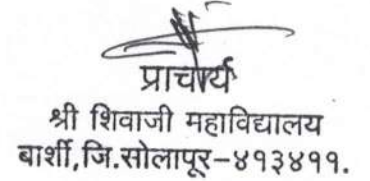 प्राचार्य
श्री शिवाजी महाविद्यालय
बार्शी,जि.सोलापूर-४१३४११.